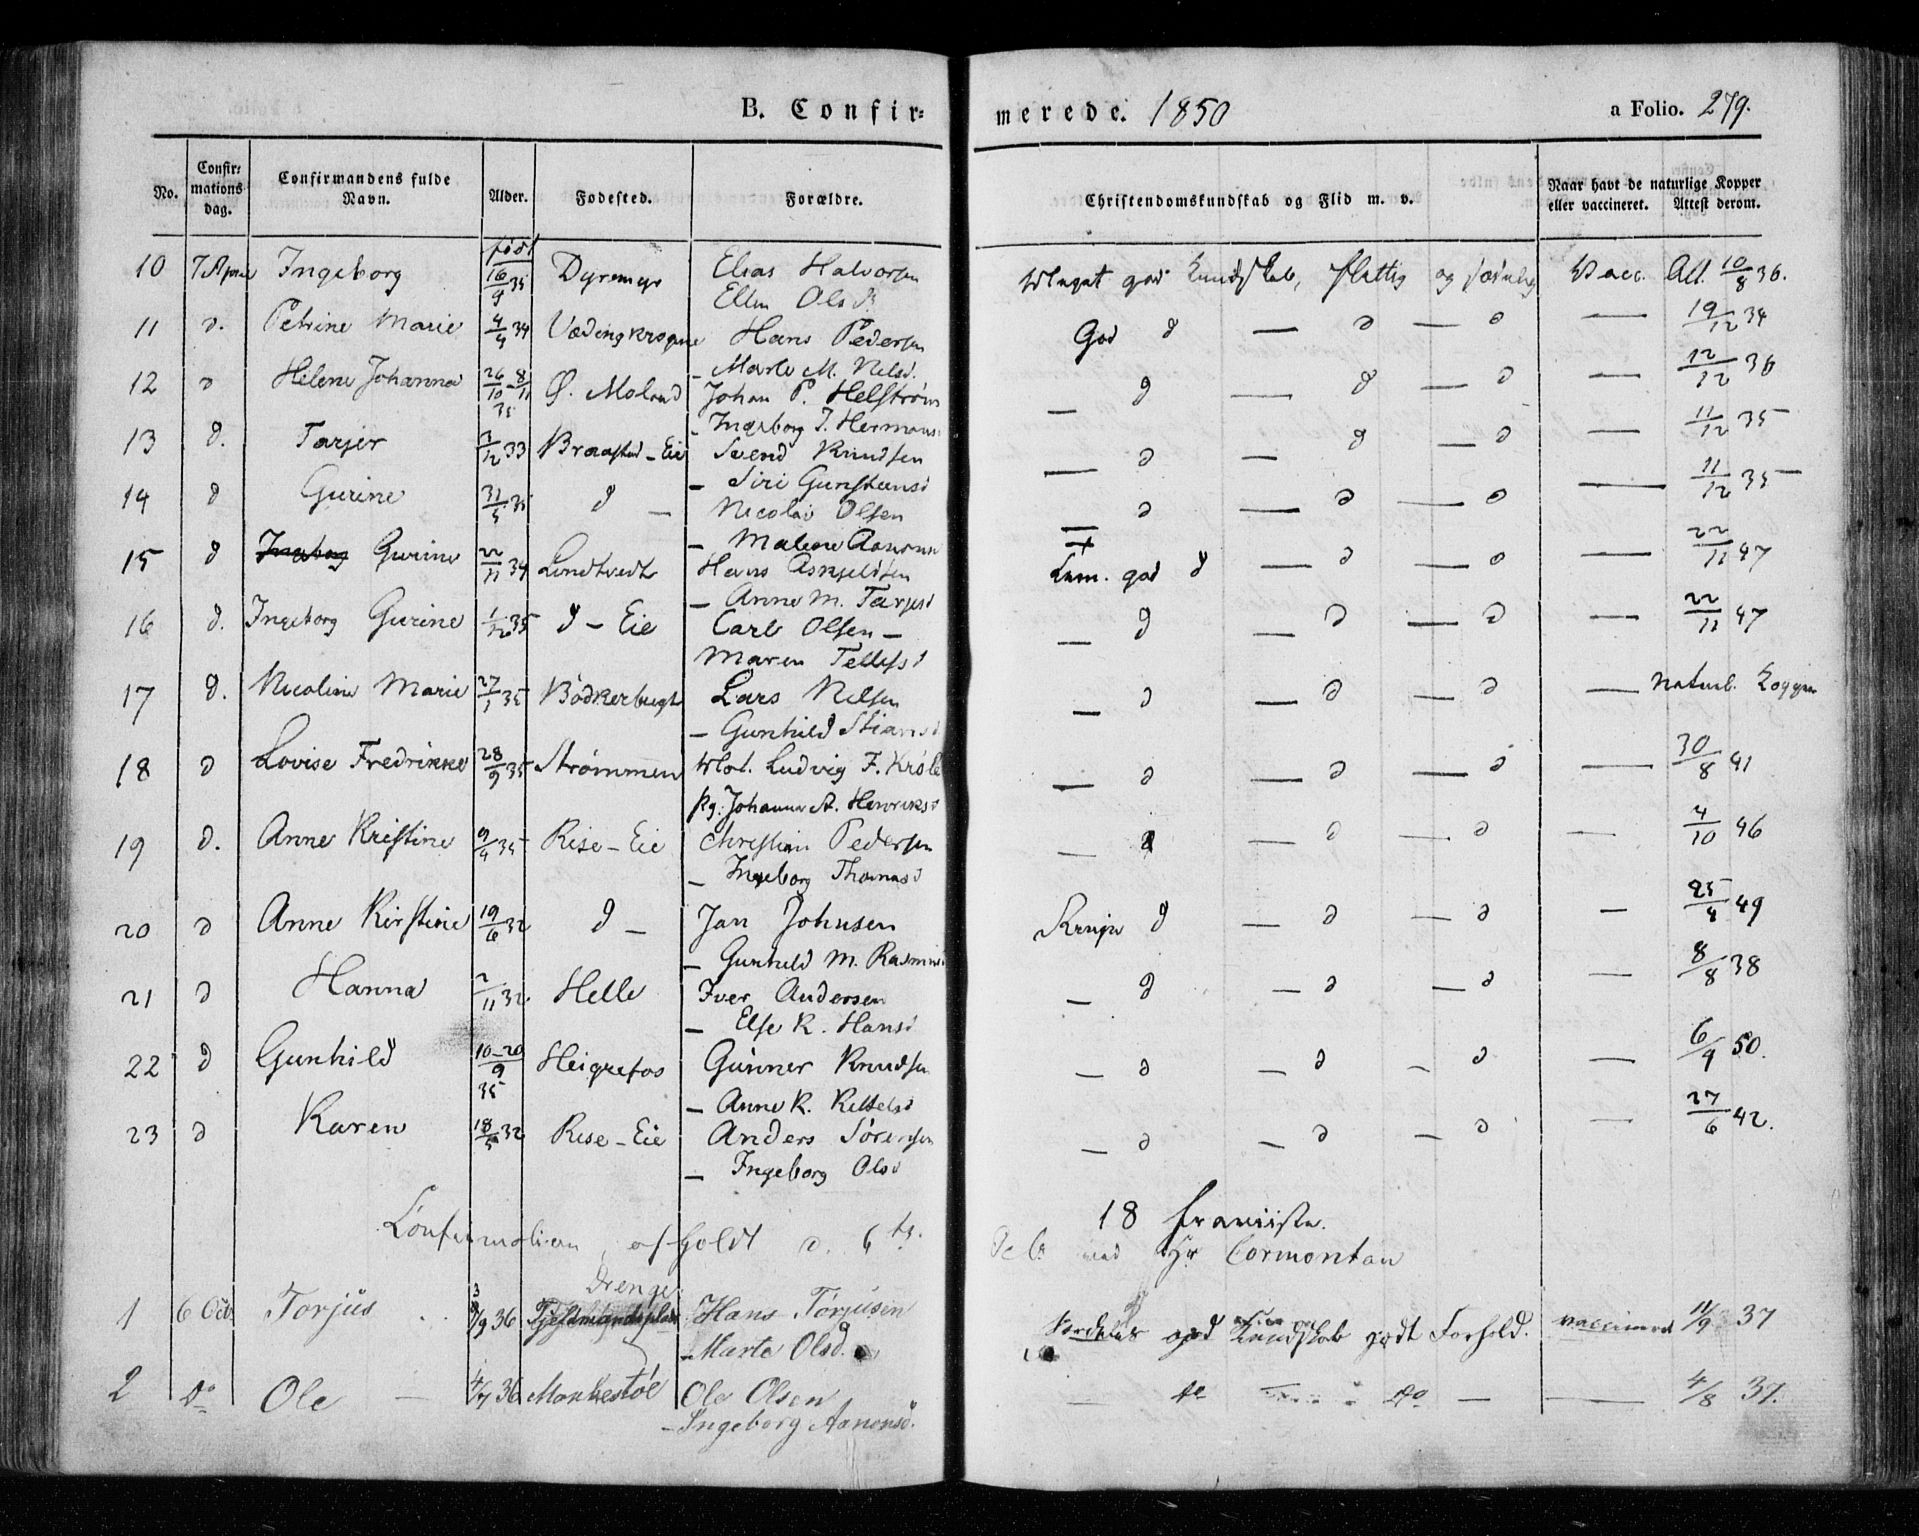 B. Confir-
merede. 1850
a Folio. 279.
No.
Confir-
mations
dag.
Confirmandens fulde
Navn.
Alder.
Fødested.
Forældre.
Christendomskundskab og Flid m. v.
Naar havt de naturlige Kopper
eller vaccineret. Attest derom.
født
10 7 April Ingeborg 16/9 35 Dyremyr Elias Halvorsen Meget god Kundskab, flittig og sædelig Vacc. Att. 10/8 36.
Ellen Olsd.
11 d. Petrine Marie 4/4 34 Hans Pedersen God d — d — d — 19/12 34
– Marte M. Nilsd.
12 d Helene Johanna 26/10 - 8/11 35 Ø. Moland Johan P. Helstrøm — d — d — d — 12/12 36
– Ingeborg J. Hermans
13 d. Tarjer 33 Braastad-Eie Svend Knudsen — d — d — d — 11/12 35
– Siri Gunstensd
14 d Gurine 31/5 35 d — Nicolai Olsen — d — d — d — 11/12 35
– Malene
15 d Ingeborg Gurine 22/11 34 Lundtvedt Hans Askjeldsen Tem. god d — d — d — 22/11 47
– Anne M. Tarjesd
16 d. Ingeborg Gurine 1/12 35 d – Eie Carl Olsen – — d — d — d — 22/11 47
Maren Tellefsd
17 d. Nicoline Marie 27/1 35 Bödkerbugt Lars Nilsen — d — d — d — naturl. Kopper
– Gunhild Stiansd
18 d Lovise Fredrikke 28/9 35 Strømmen Ludvig F. — d — d — d — 30/8 41
pg: Johanne A. Henriksd
19 d. Anne Kristine 9/4 35 Rise-Eie Christian Pedersen — d — d — d — 4/10 46
– Ingeborg Thomasd
20 d Anne Kirstine 19/6 32 d – Jan Johnsen Ringe d — d — d — 25/4 49
– Gunhild M. Rasmusd
21 d Hanna 2/11 32. Helle Iver Andersen — d — d — d — 8/8 38
– Else K. Hansd
22 d Gunhild 10-20/9 35 Heigrefos Gunner Knudsen — d — d — d — 6/9 50.
– Anne K. Kittelsd
23 d Karen 18/5 32 Rise-Eie Anders Sørensen — d — d — d — 27/6 42.
– Ingeborg Olsd
Confirmation afholdt d. 6 October ved Hr Cormontan
Drenge
1 6 Octb Torjus 9/9 36 Tjeldmandsplads Hans Torjusen god Kundskab godt Forhold. vaccineret 11/9 37
– Marte Olsd.
2 do Ole 4/7 36 Ole Olsen — do — do — — 4/8 37.
– Ingeborg Aanonsd.